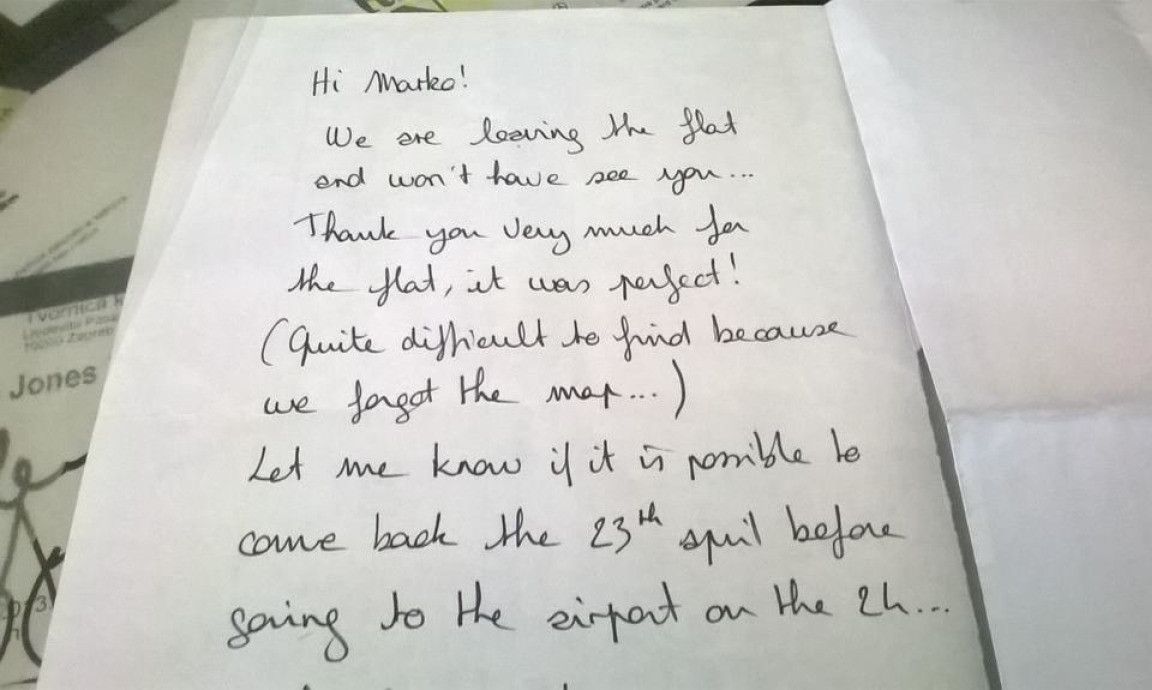 Hi Marko!
We are leaving the flat
and won't have see you...
Thank you very much for
the flat, it was perfect!
(Quite difficult to find because
we forgot the map...)
Let me know if it is possible to
come back the 23th april before
going to the airport on the 24...
Tvornica
Jones